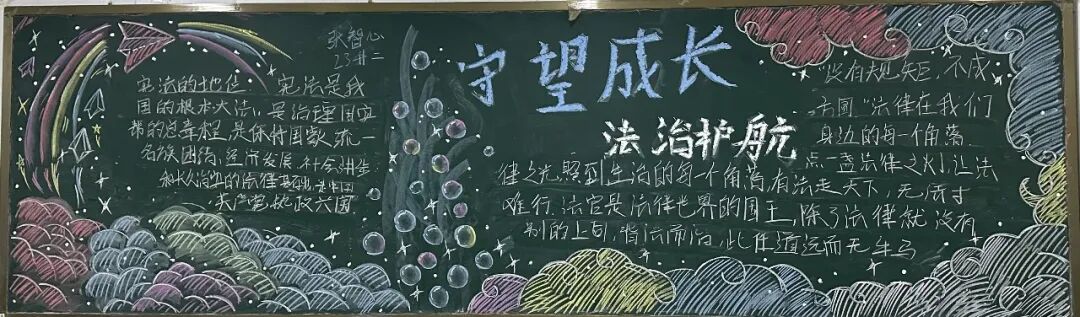 张智心
23廾二
宪法的地位：宪法是我
国的根本大法，是治理国家
帮的总章程，是保持国家统一
名族团结，经济发展，社会进步
和长久治安的法律基础，是中国
共产党执政兴国
守望成长
法治护航
"没有规矩，不成
方圆"法律在我们
身边的每一个角落，
点一盏法律之火，让法
律之光照到生活的每一个角落，有法走天下，无法寸
难行，法官是法律世界的国王，除了法律就没有
别的上司，将法而治，此任道远而无